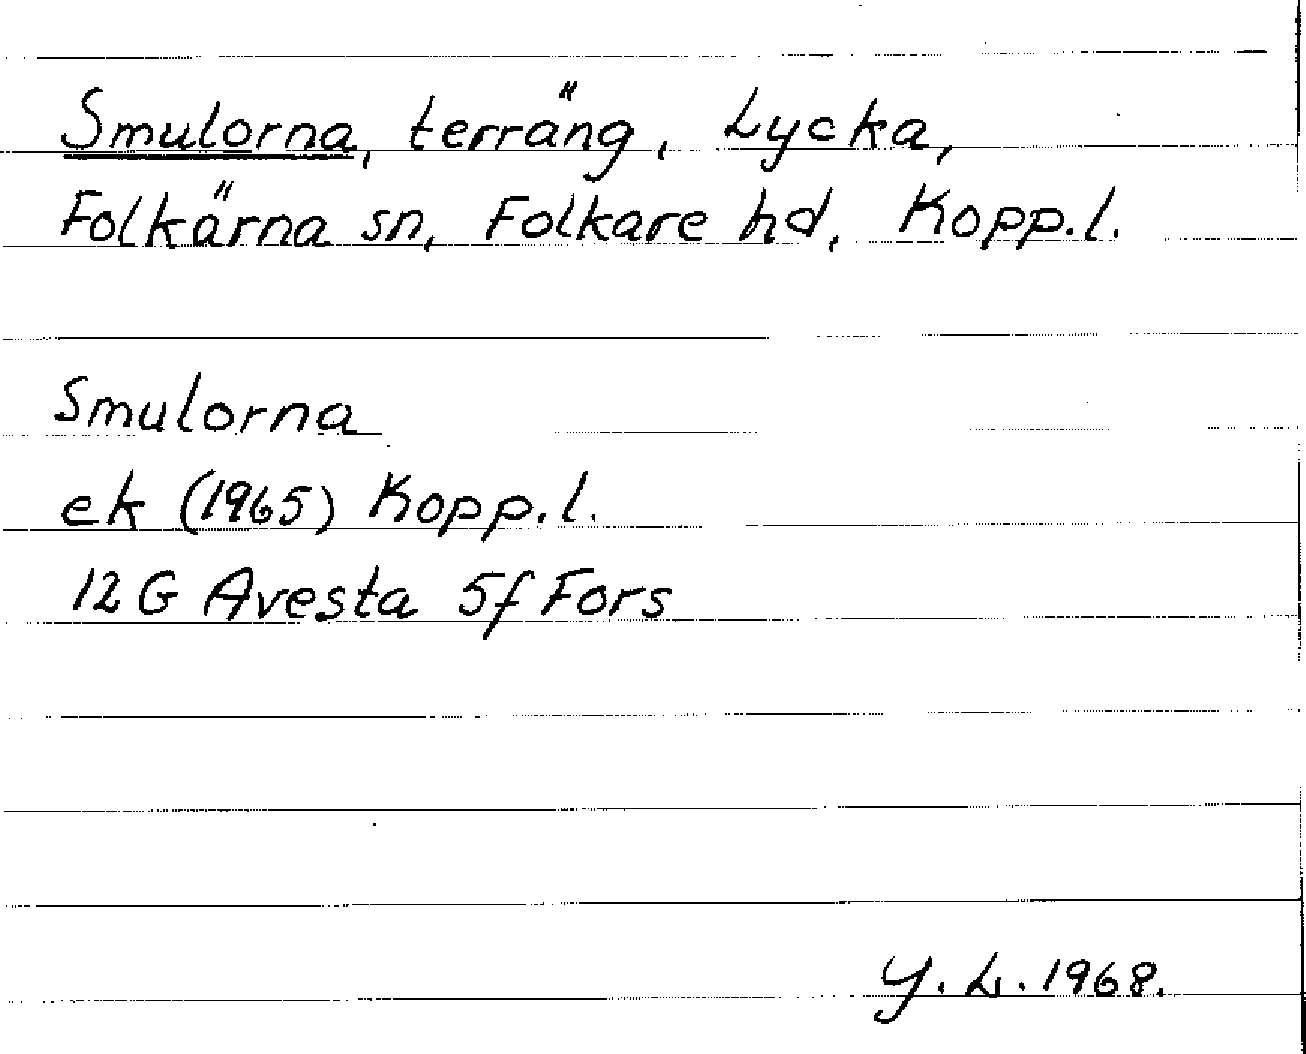 Smulorna, terräng, Lycka,
Folkärna sn, Folkare hd, Kopp.l.
Smulorna
ek (1965) Kopp.l.
12G Avesta 5f Fors
Y.L.1968.